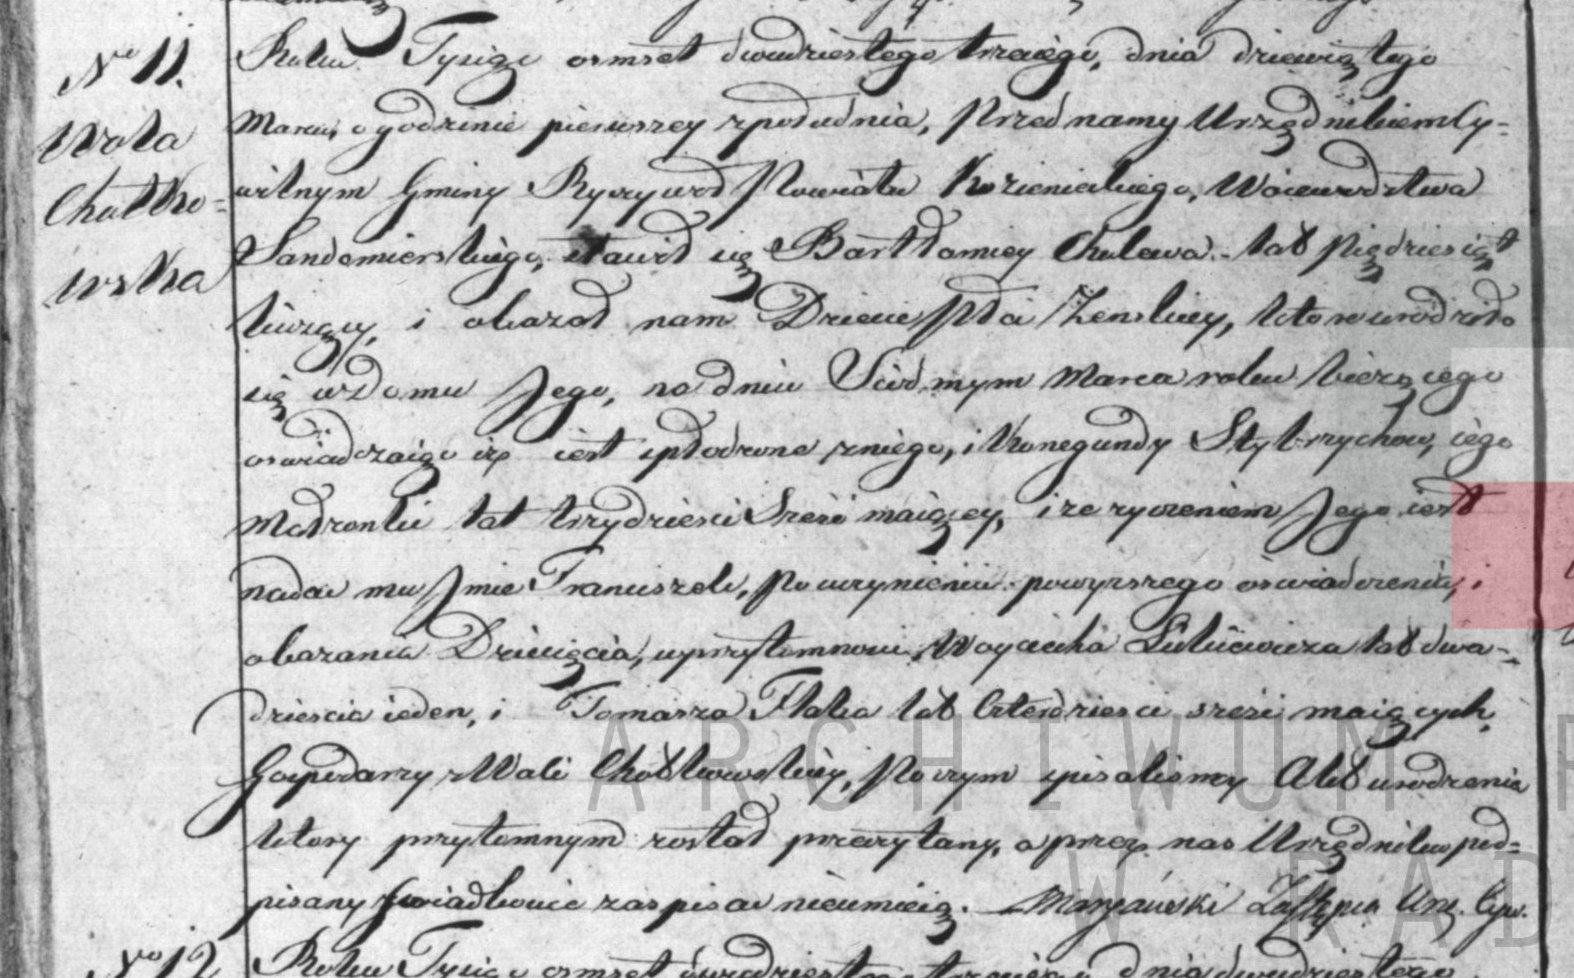 No 11.
Wola
Chodko=
wska
Roku Tysiąc osmset dwudziestego trzeciego, dnia dziewiątego
Marca, o godzinie pierwszey zpołudnia, Przed namy Urzędnikiem Cy=
wilnym Gminy Ryczywoł Powiatu Kozienickiego, Woiewodztwa
Sandomierskiego, stawił się Bartłomiey Cholewa lat Pięćdziesiąt
liczący, i okazał nam Dziecie Płci Zenskiey, ktore urodziło
się wdomu Jego, na dniu Siódmym Marca roku bieżącego
oswiadczaiąc iż iest spłodzone zniego, i Konegundy Stybrzychow, iego
Małzonki lat trzydziesci Sześć maiącey, i ze zyczeniem Jego iest
nadać mu Jmie Franciszek, Po uczynieniu powyzszego oświadczenia, i
okazania Dziecięcia, wprzytomnowi Woyciecha Lukiewicza lat dwa=
dziescia ieden, i Tomasza Flaka lat Czterdziesci sześć maiących,
Gospodarzy z Woli Chodkowskiey, Po czym spisalismy Akt urodzenia
ktory przytomnym został przeczytany, a przez nas Urzędnika pod=
pisany Swiadkowie zas pisac nieumieią. Maryański Zastępca Urz. Cyw.
No 12 Roku Tysiąc osmset dwudziestego trzeciego dnia dwudziestego
ARCHIWUM
W RAD